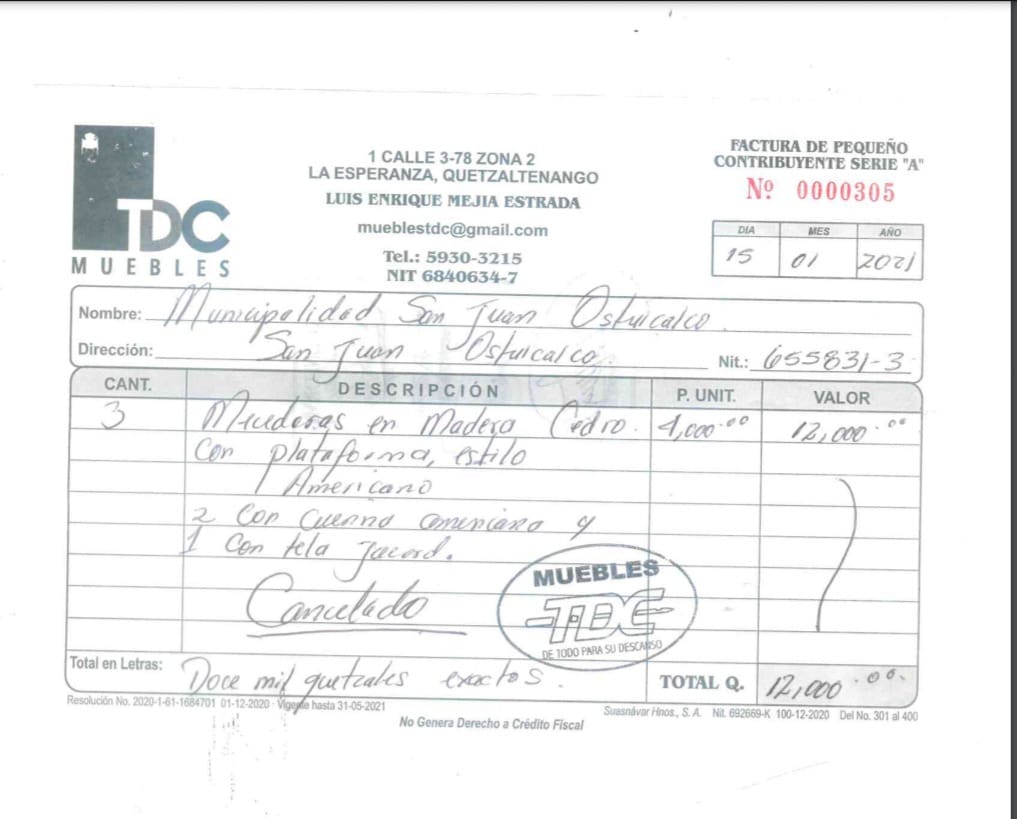 TDC
MUEBLES
1 CALLE 3-78 ZONA 2
LA ESPERANZA, QUETZALTENANGO
LUIS ENRIQUE MEJIA ESTRADA
mueblestdc@gmail.com
Tel.: 5930-3215
NIT 6840634-7
FACTURA DE PEQUEÑO
CONTRIBUYENTE SERIE "A"
Nº 0000305
DIA MES AÑO
15 01 2021
Nombre: Municipalidad San Juan Ostuncalco
Dirección: San Juan Ostuncalco Nit.: 655831-3
CANT. DESCRIPCIÓN P. UNIT. VALOR
3 en Madera Cedro. 4,000.00 12,000.00
Con plataforma, estilo
Americano
2 Con y
1 Con tela
Cancelado
MUEBLES
TDC
DE TODO PARA SU DESCANSO
Total en Letras: Doce mil quetzales exactos. TOTAL Q. 12,000.00.
Resolución No. 2020-1-61-1684701 01-12-2020 · Vigente hasta 31-05-2021
Suasnávar Hnos., S. A. Nit. 692669-K 100-12-2020 Del No. 301 al 400
No Genera Derecho a Crédito Fiscal